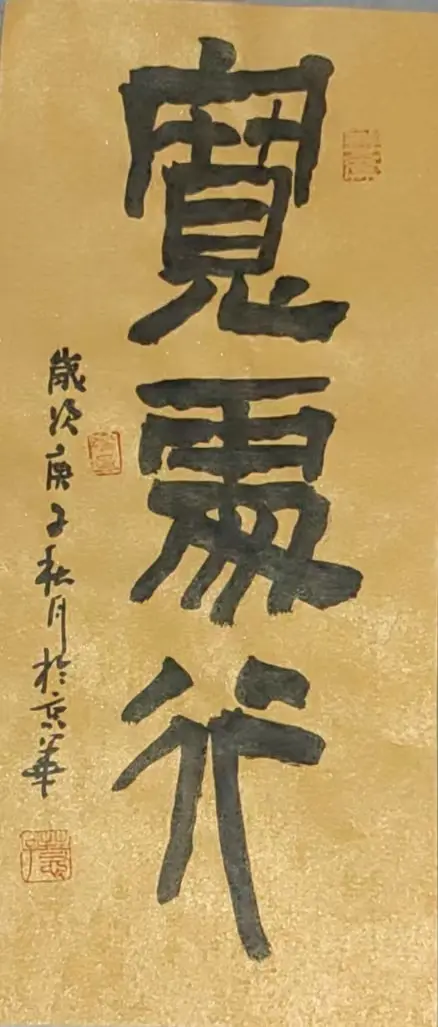 寬處行
歲次庚子秋月於京華